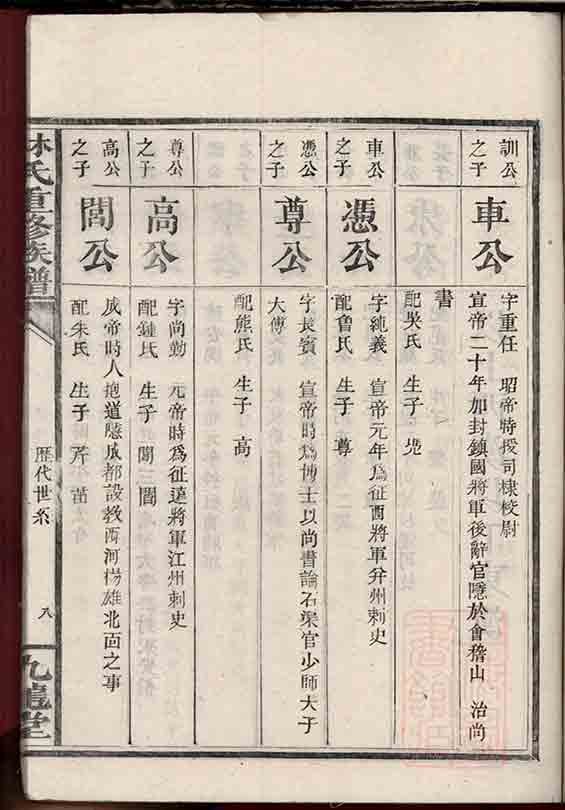 訓公
之子
車公
字重任 昭帝特授司棣校尉
宣帝二十年加封鎮國將軍後辭官隱於會稽山 治尚
書
配吳氏 生子 憑
車公
之子
憑公
字純義 宣帝元年為征酉將軍弁州刺史
配魯氏 生子 尊
憑公
之子
尊公
字長賓 宣帝時為博士以尚書論石渠官少師大子
大傅
配熊氏 生子 高
尊公
之子
高公
字尚勤 元帝時為征遠將軍江州刺史
配鍾氏 生子 閭三
高公
之子
閭公
成帝時人抱道隱成都設教西河楊雄北面之事
配朱氏 生子 芹 苗
林氏重修族譜
歷代世系
八
九龍堂